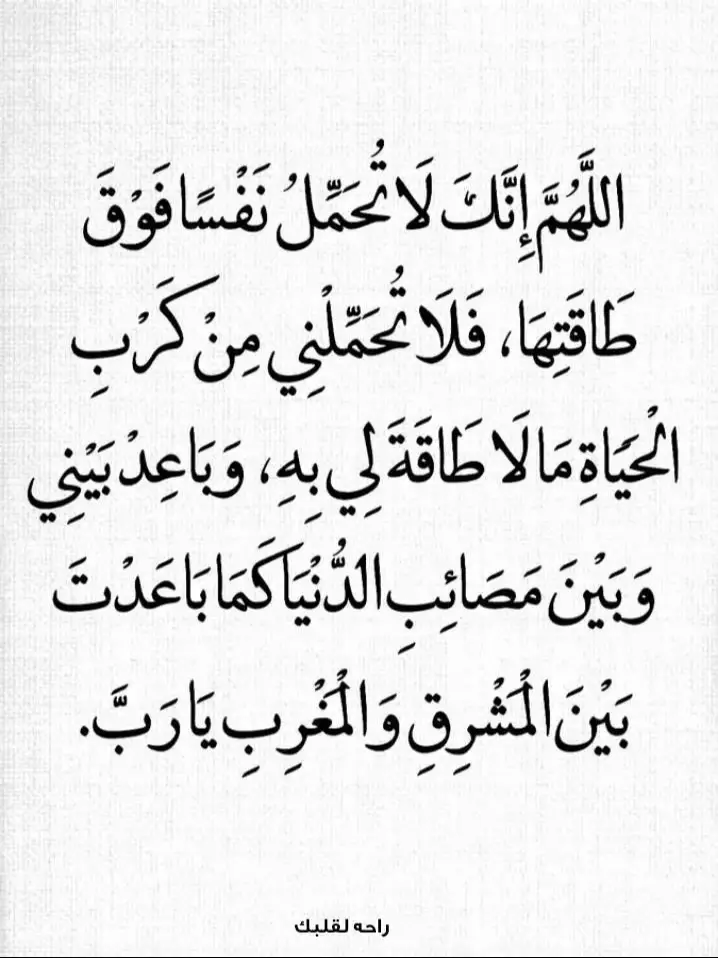 اللَّهُمَّ إِنَّكَ لَا تُحَمِّلُ نَفْسًا فَوْقَ
طَاقَتِهَا، فَلَا تُحَمِّلْنِي مِنْ كَرْبِ
الْحَيَاةِ مَا لَا طَاقَةَ لِي بِهِ، وَبَاعِدْ بَيْنِي
وَبَيْنَ مَصَائِبِ الدُّنْيَا كَمَا بَاعَدْتَ
بَيْنَ الْمَشْرِقِ وَالْمَغْرِبِ يَا رَبَّ.
راحه لقلبك